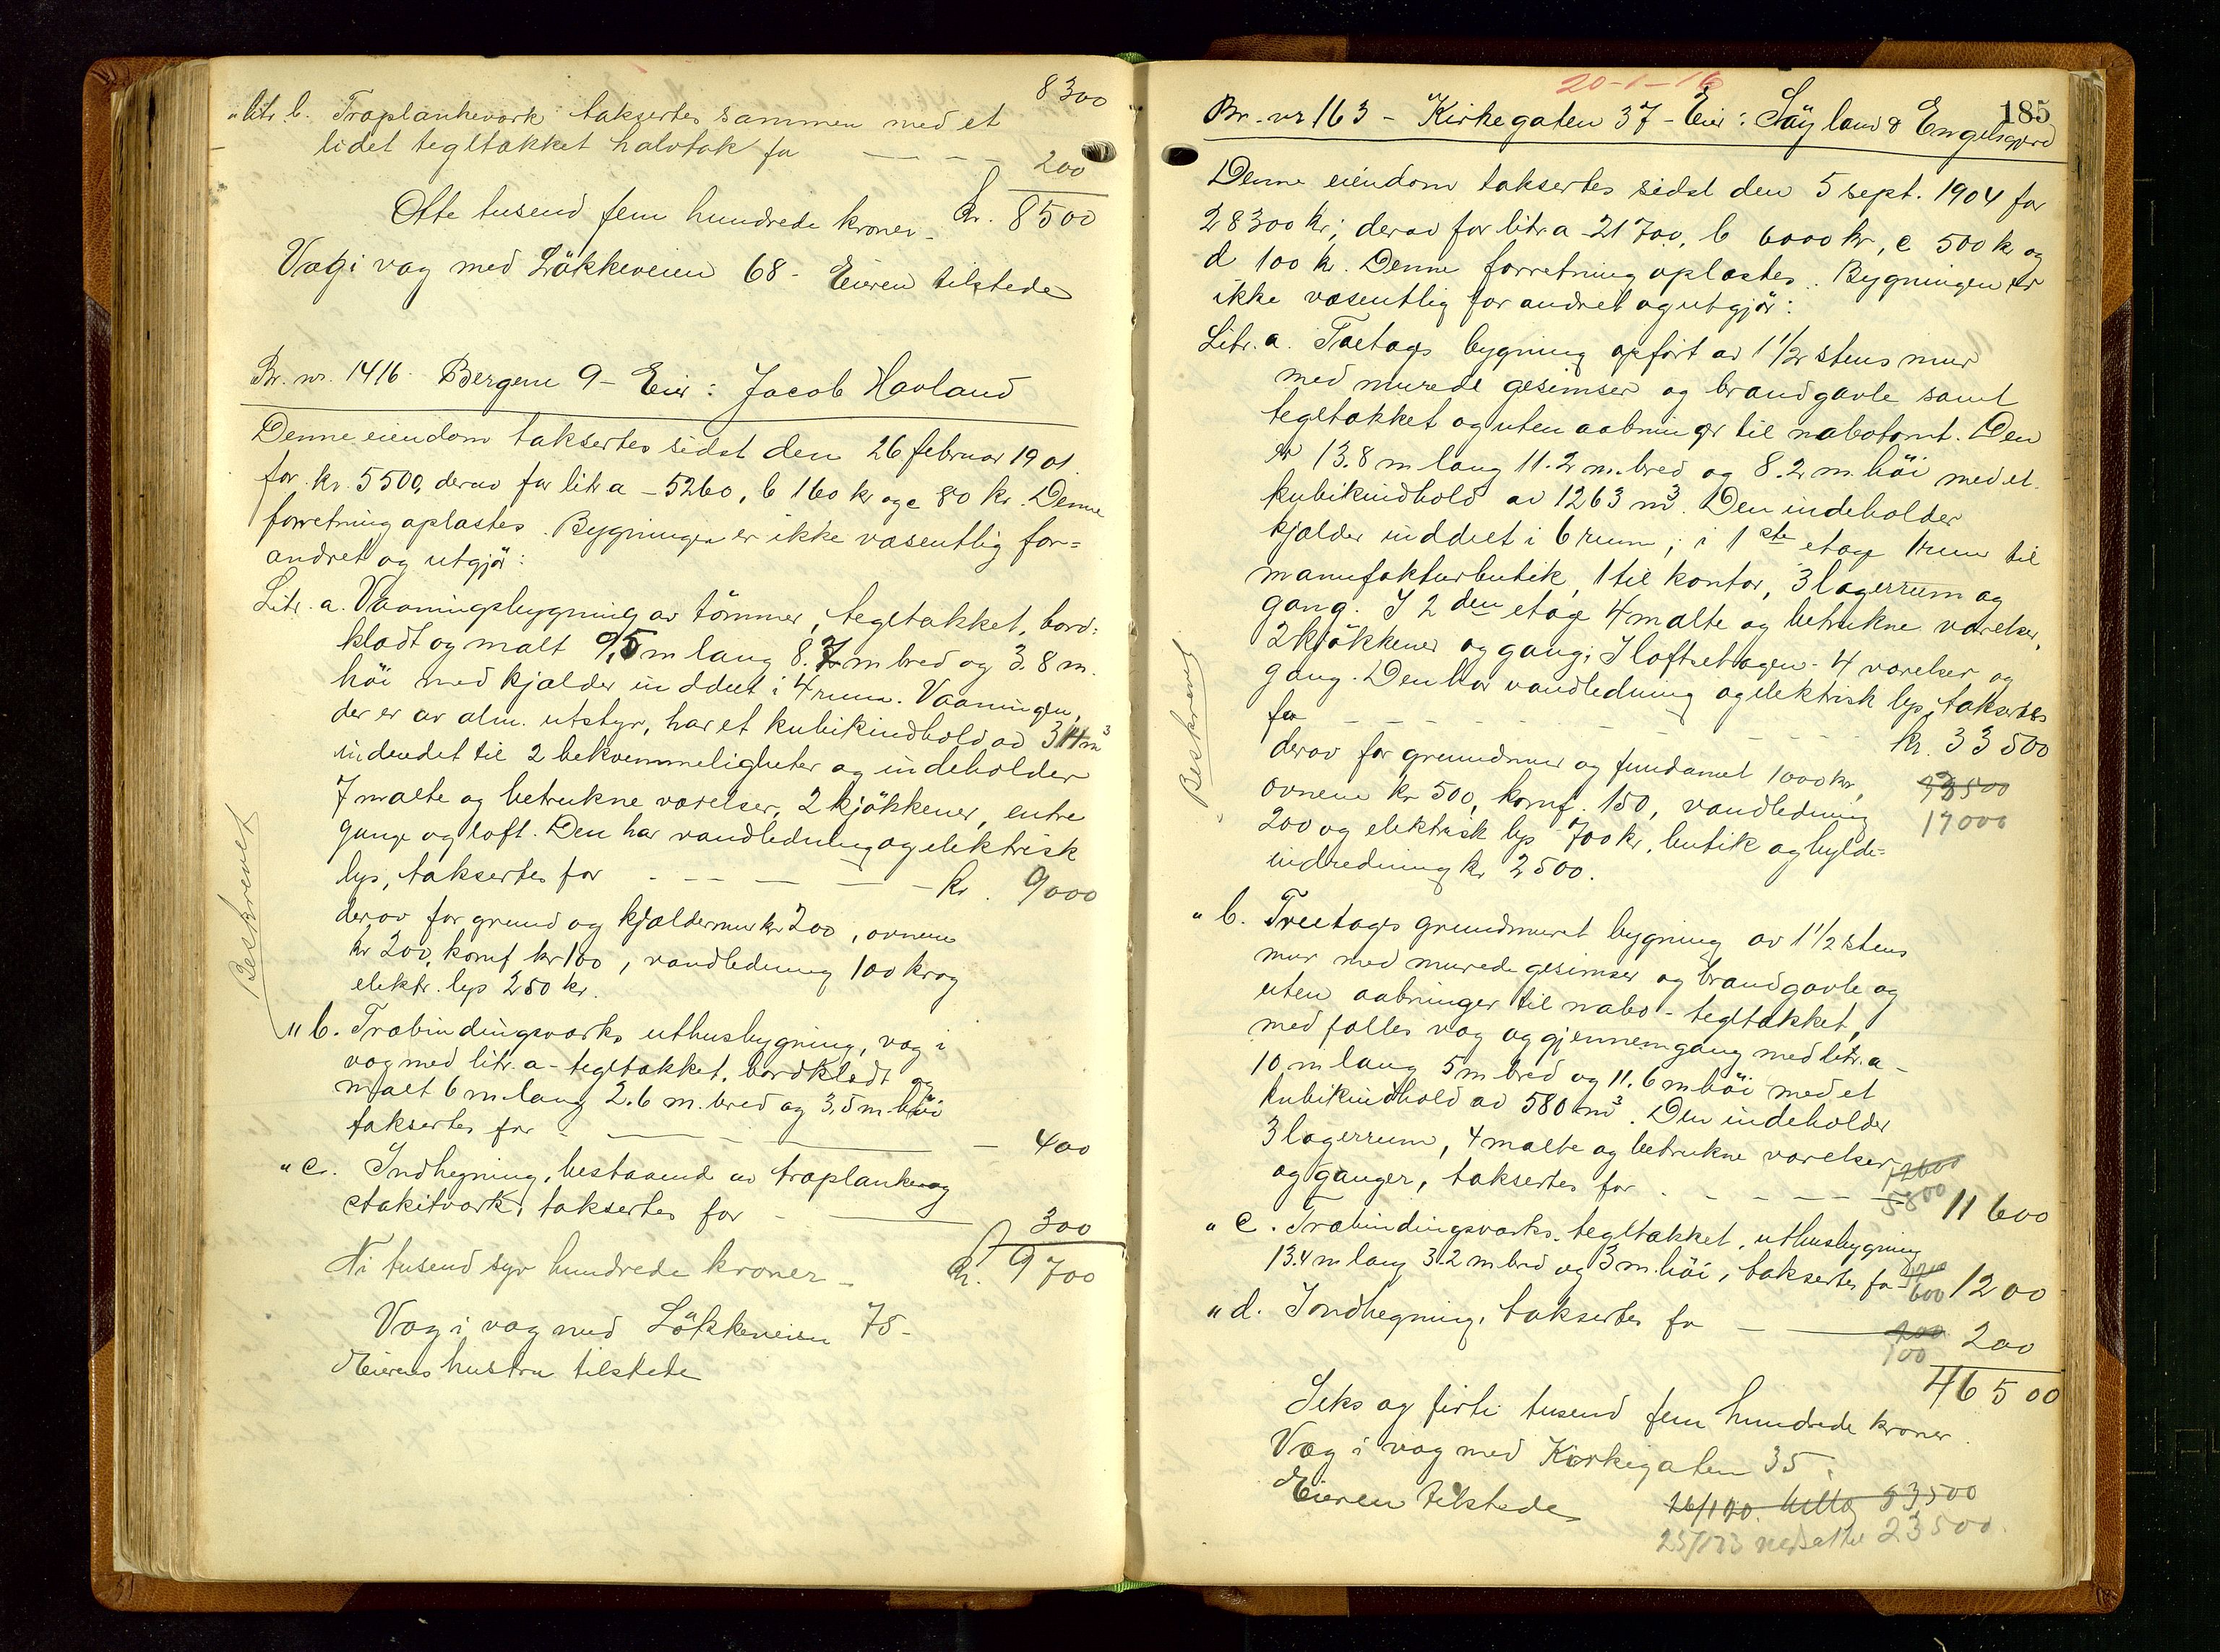 8300
"litr. b. Træplankeværk takseres sammen med et
lidet tegltækket halvtak for — — — 200
Otte tusend fem hundrede kroner - Kr. 8500
Væg i væg med Løkkeveien 68 - Eieren tilstede
Br. nr. 1416 Bergene 9 - Eier: Jacob Havland
Denne eiendom taksertes sidst den 26 februar 1901
for kr. 5500, derav for litr a - 5260, b 160 kr og c 80 kr. Denne
forretning oplæstes. Bygningen er ikke væsentlig for=
andret og utgjør:
Litr. a. Vaaningsbygning av tømmer, tegltækket, bord=
klædt og malt 9,5 m lang 8.7 m bred og 3.8 m.
høi med kjælder inddelt i 4 rum. Vaaningen,
der er av alm. utstyr, har et kubikindhold av 314 m³
inddeelt til 2 bekvemmeligheter og indeholder
7 malte og betrukne værelser, 2 kjøkkener, entre
gange og loft. Den har vandledning og elektrisk
lys, taksertes for - — — — — kr. 9000
derav for grund og kjældermur kr 200, ovnene
kr 200, komf kr 100, vandledning 100 kr og
elektr. lys 250 kr.
Beskrevet
" b. Træbindingsværks uthusbygning, væg i
væg med litr. a - tegltækket, bordklædt og
malt 6 m lang 2.6 m. bred og 3,5 m høi
taksertes for - — - — — 400
" c. Indhegning, bestaaende av træplanke og
stakitværk, taksertes for - — 300
Ni tusend syv hundrede kroner - Kr. 9700
Væg i væg med Løkkeveien 78 -
Eierens hustru tilstede
20-1-16
185
Br. nr 163 - Kirkegaten 37 - Eier: Søyland & Engelsgjerd
Denne eiendom taksertes sidst den 5 sept. 1904 for
28300 kr; derav for litr a 21700, b 6000 kr, c 500 kr og
d 100 kr. Denne forretning oplæstes. Bygningen er
ikke væsentlig forandret og utgjør:
Litr. a. Toetages bygning opført av 1 1/2 stens mur
med murede gesimser og brandgavle samt
tegltækket og uten aabninger til nabotomt. Den
er 13.8 m lang 11.2 m. bred og 8.2 m. høi med et
kubikindhold av 1263 m³. Den indeholder
kjælder inddelt i 6 rum; i 1ste etage 1 rum til
manufakturbutik, 1 til kontor, 3 lagerrum og
gang. I 2den etage 4 malte og betrukne værelser,
2 kjøkkener og gang; I loftsetagen - 4 værelser og
gang. Den har vandledning og elektrisk lys, taksertes
for - - - - - - - - kr. 33500
Beskrevet
derav for grundmur og fundament 1000 kr,
ovnene kr 500, komf. 150, vandledning 17000
200 og elektrisk lys 700 kr, butik og hylde=
indredning kr 2500.
" b. Treetages grundmuret bygning av 1 1/2 stens
mur med murede gesimser og brandgavle og
uten aabninger til nabo - tegltækket,
med fælles væg og gjennemgang med litr. a -
10 m lang 5 m bred og 11.6 m høi med et
kubikindhold av 580 m³. Den indeholder
3 lagerrum, 4 malte og betrukne værelser
og ganger, taksertes for - - - - 5800 11600
" c. Træbindingsværks, tegltækket, uthusbygning
13.4 m lang 3.2 m bred og 3 m. høi, taksertes for 600 1200
" d. Indhegning, taksertes for — — 200 100 200
46500
Seks og firti tusend fem hundrede kroner
Væg i væg med Kirkegaten 35.
Eieren tilstede
53500
nedsat til 23500.